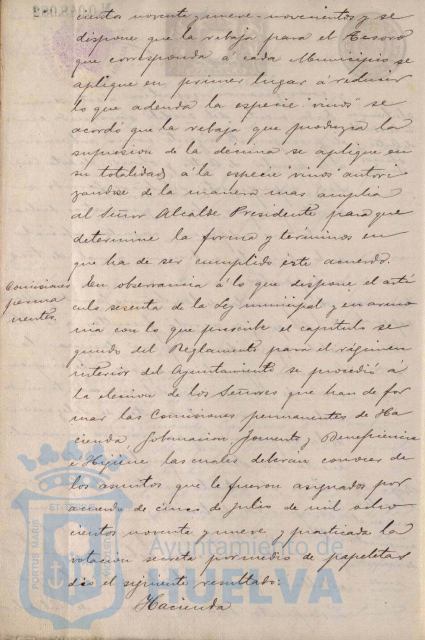 cientos noventa y nueve-novecientos y se
dispone que la rebaja para el Tesoro
que corresponda á cada Municipio se
aplique en primer lugar á reducir
lo que adeuda la especie "vinos" se
acordó que la rebaja que produzca la
supresion de la décima se aplique en
su totalidad á la especie vinos autori
zandose de la manera mas amplia
al Señor Alcalde Presidente para que
determine la forma y términos en
que ha de ser cumplido este acuerdo.
Comisiones
perma
nentes.
En observancia á lo que dispone el artí
culo sesenta de la Ley municipal y en armo
nia con lo que prescribe el capítulo se
gundo del Reglamento para el régimen
interior del Ayuntamiento se procedió á
la eleccion de los Señores que han de for
mar las Comisiones permanentes de Ha
cienda, Gobernacion, Fomento y Beneficencia
é Higiene las cuales deberan conocer de
los asuntos que le fueron asignados por
acuerdo de cinco de julio de mil ocho
cientos noventa y nueve y practicada la
votacion secreta por medio de papeletas
dió el siguiente resultado:
Hacienda
PORTUS MARIS
Ayuntamiento de
HUELVA